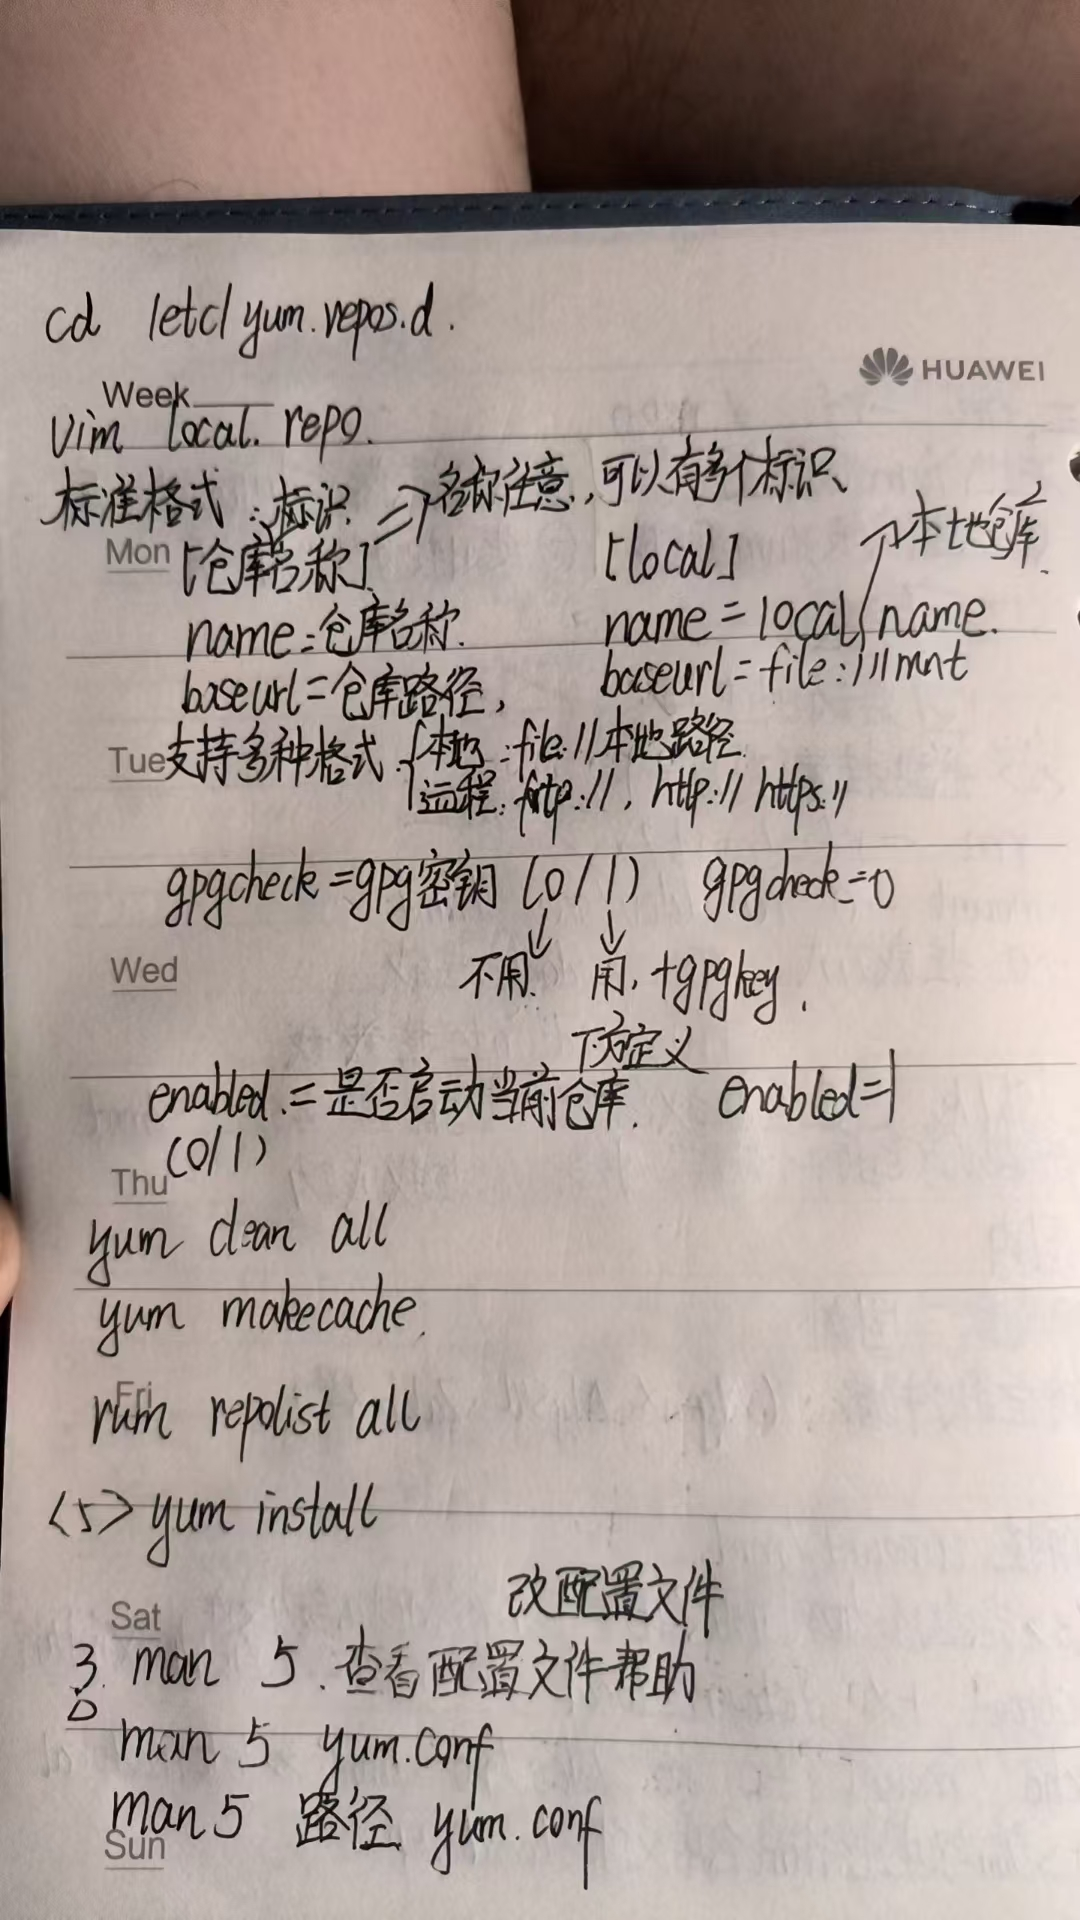 cd /etc/yum.repos.d.
HUAWEI
Week
vim local.repo.
标准格式:标识 => 名称任意,可以有多个标识
Mon [仓库名称] [local] 本地仓库.
name=仓库名称. name=local name.
baseurl=仓库路径, baseurl=file:///mnt
Tue 支持多种格式 { 本地:file://本地路径
远程:ftp://, http:// https://
gpgcheck=gpg密钥 (0/1) gpgcheck=0
Wed 不用. 用, +gpgkey.
下方定义
enabled.=是否启动当前仓库. enabled=1
(0/1)
Thu
yum clean all
yum makecache.
Fri
rum repolist all
<5> yum install
改配置文件
Sat
3. man 5.查看配置文件帮助
man 5 yum.conf
man 5 路径 yum.conf
Sun